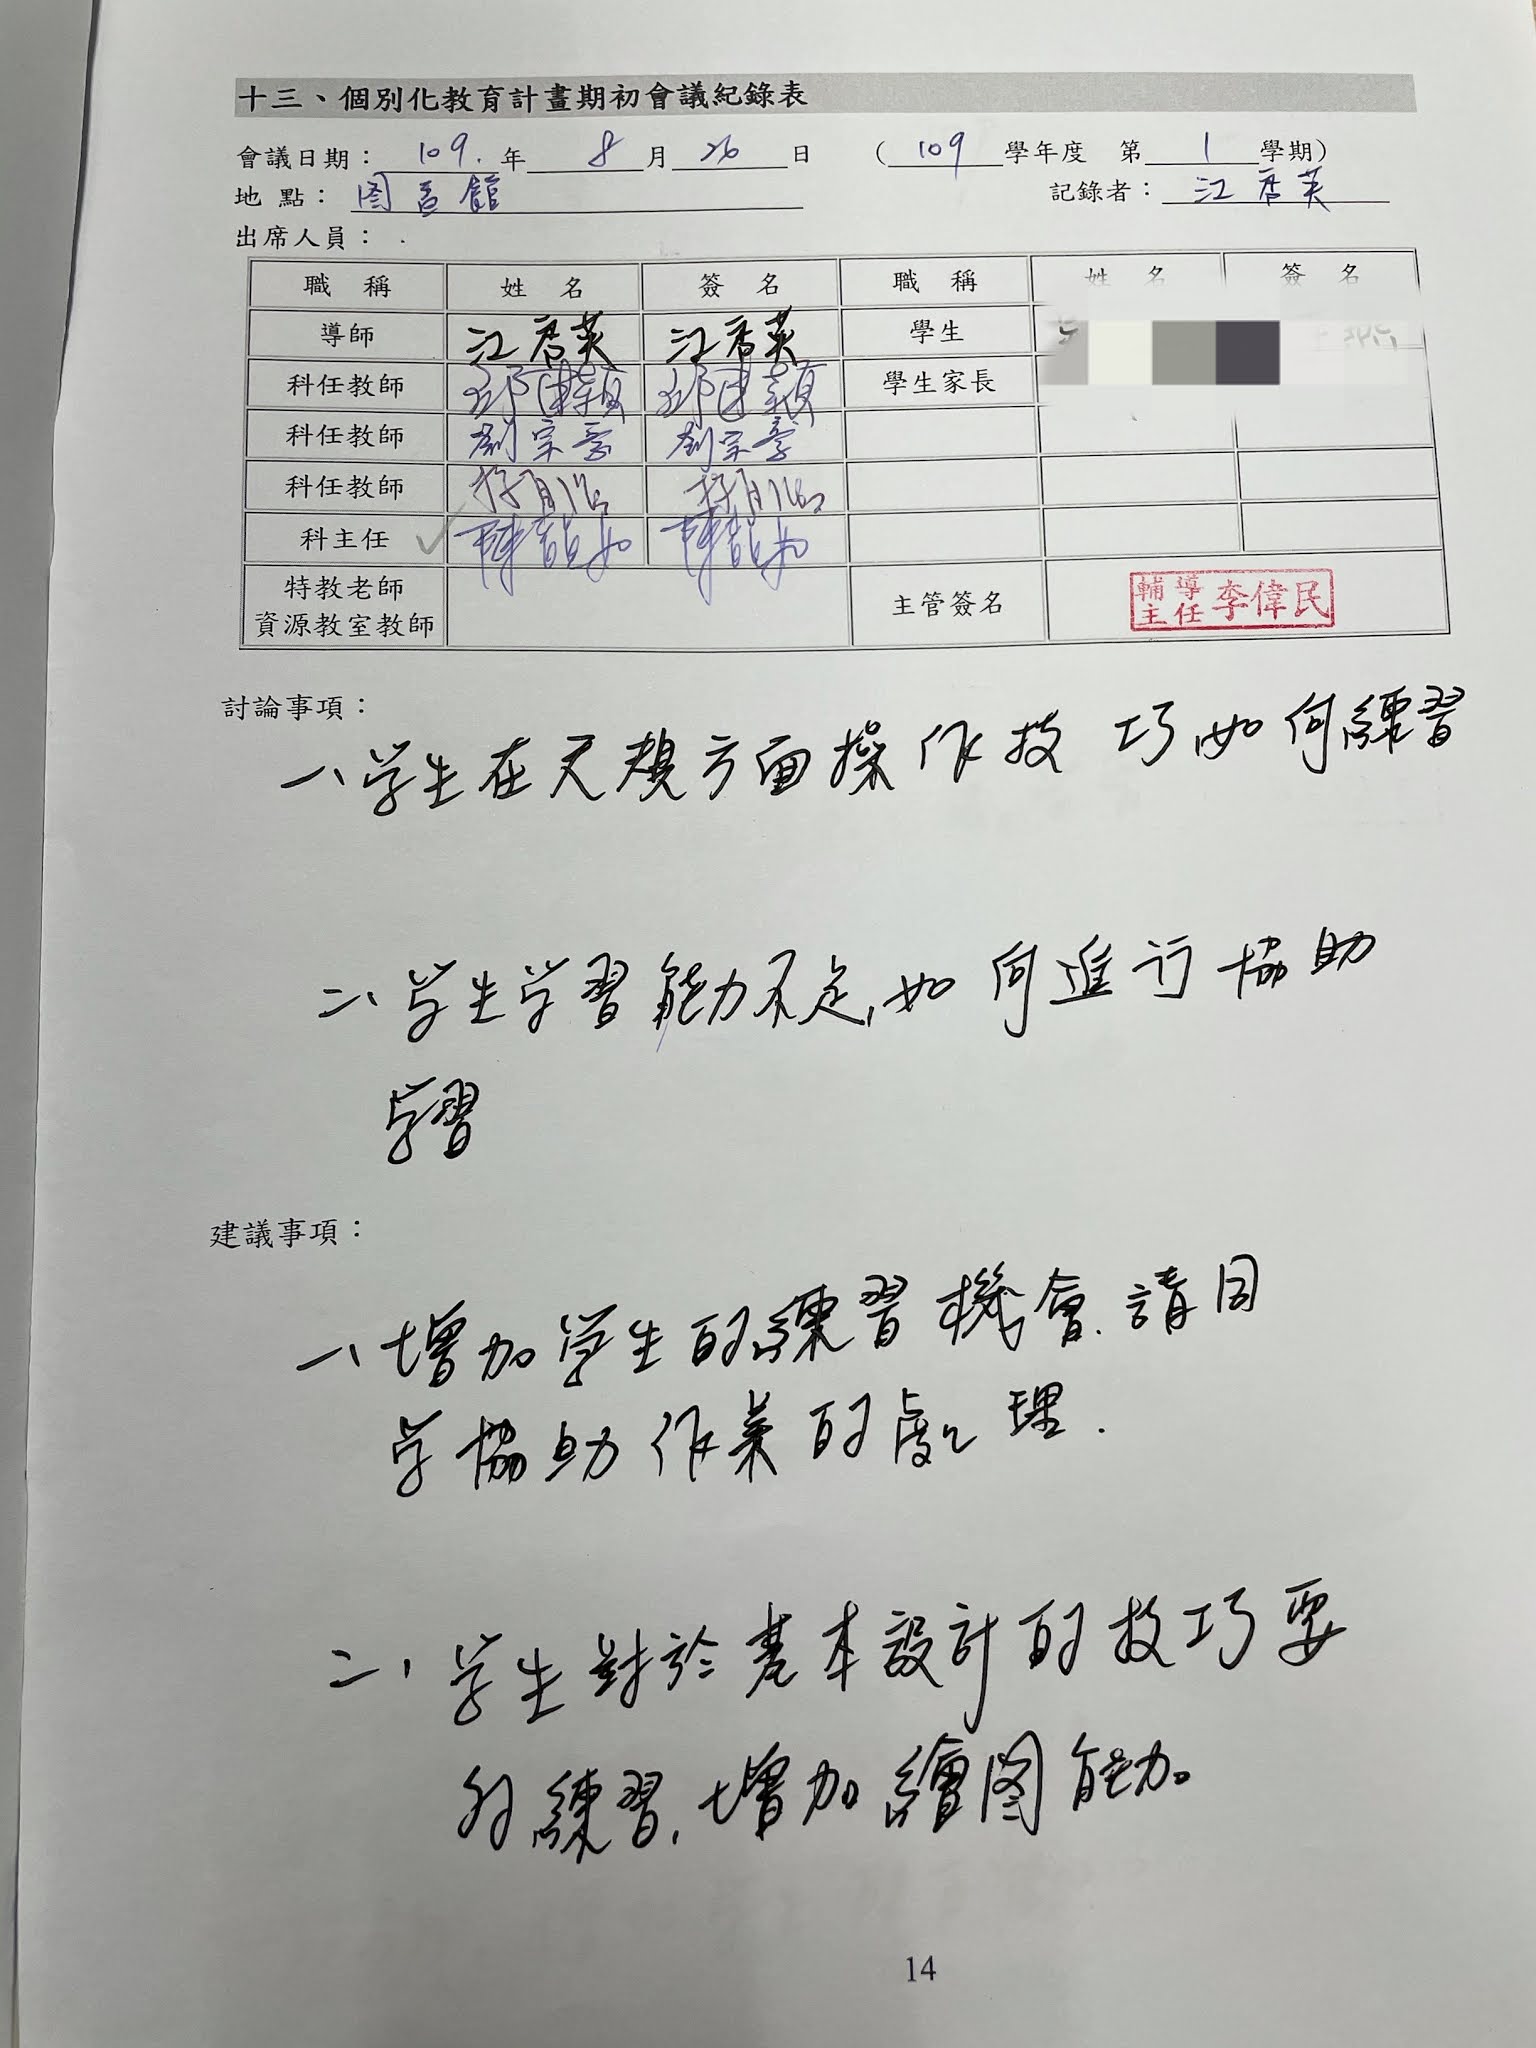 十三、個別化教育計畫期初會議紀錄表
會議日期： 109. 年 8 月 26 日 （ 109 學年度 第 1 學期）
地 點： 图書館 記錄者： 江秀英
出席人員：
職 稱 姓 名 簽 名 職 稱 姓 名 簽 名
導師 江秀英 江秀英 學生
科任教師 學生家長
科任教師
科任教師
科主任
特教老師
資源教室教師
主管簽名 輔導主任 李偉民
討論事項：
一、学生在 方面操作技巧如何練習
二、学生学習能力不足,如何進行協助
学習
建議事項：
一、增加学生的練習機會.請同
学協助作業的處理.
二、学生對於基本設計的技巧要
練習,增加繪图能力。
14